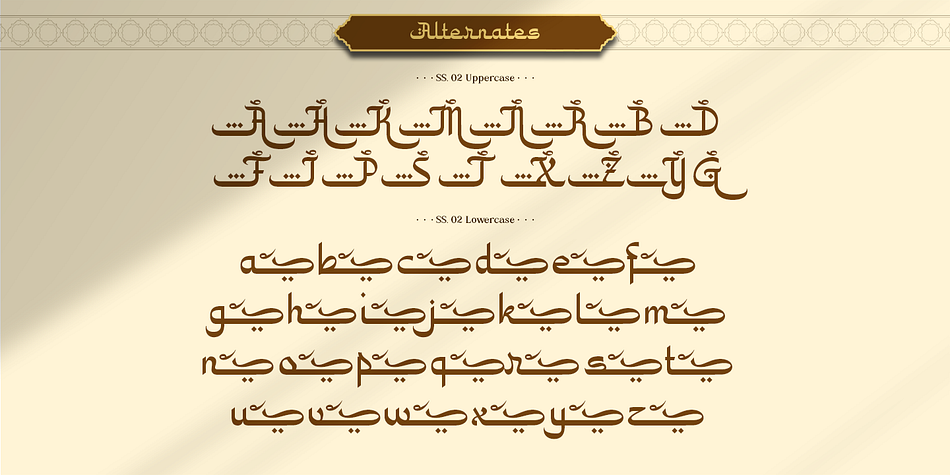 Alternates
· · · SS. 02 Uppercase · · ·
A H K M N R B D
F I P S T X Z Y G
· · · SS. 02 Lowercase · · ·
a b c d e f
g h i j k l m
n o p q r s t
u v w x y z